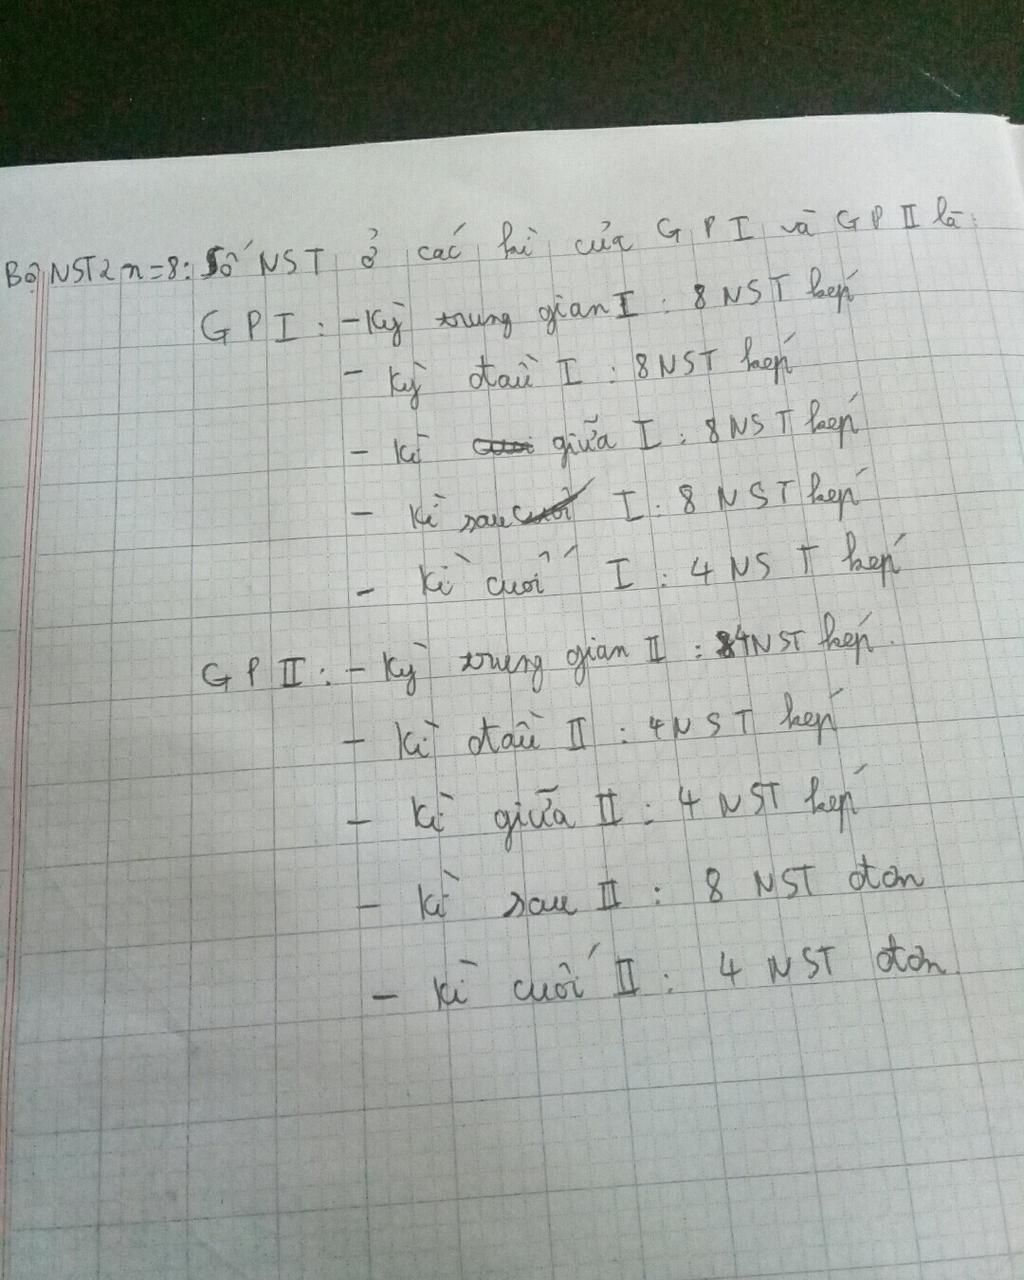 Bộ NST 2n=8: Số NST ở các kì của GP I và GP II là:
GP I: - Kỳ trung gian I: 8 NST kép
- Kỳ đầu I: 8 NST kép
- Kì giữa I: 8 NST kép
- Kì sau I: 8 NST kép
- Kì cuối I: 4 NST kép
GP II: - Kỳ trung gian II: 4 NST kép.
- Kì đầu II: 4 NST kép
- Kì giữa II: 4 NST kép
- Kì sau II: 8 NST đơn
- Kì cuối II: 4 NST đơn